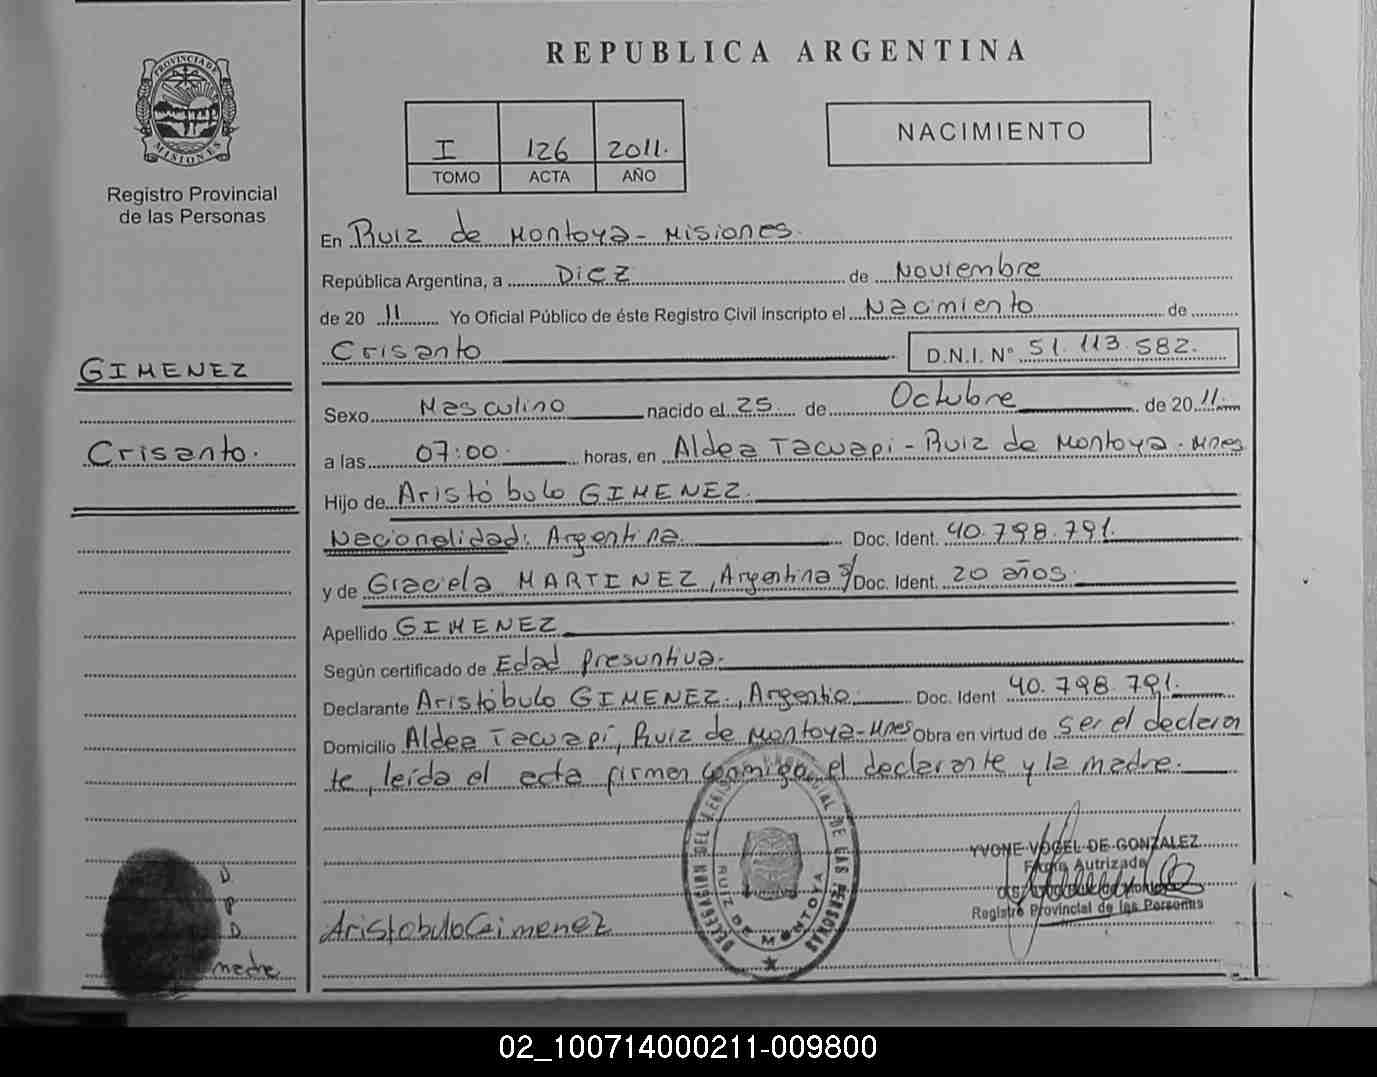 REPUBLICA ARGENTINA
PROVINCIA DE
MISIONES
Registro Provincial
de las Personas
I 126 2011.
TOMO ACTA AÑO
NACIMIENTO
En Ruiz de Montoya - Misiones.
República Argentina, a Diez de Noviembre
de 20 11 Yo Oficial Público de éste Registro Civil inscripto el Nacimiento de
Crisanto D.N.I. N° 51.113.582.
GIMENEZ
Crisanto.
Sexo Masculino nacido el 25 de Octubre de 20 11
a las 07:00 horas, en Aldea Tacuapi - Ruiz de Montoya - Mnes
Hijo de Aristóbulo GIMENEZ.
Nacionalidad: Argentina. Doc. Ident. 40.798.791.
y de Graciela MARTINEZ, Argentina s/ Doc. Ident. 20 años.
Apellido GIMENEZ
Según certificado de Edad Presuntiva.
Declarante Aristóbulo GIMENEZ., Argentio Doc. Ident 40.798.791.
Domicilio Aldea Tacuapí, Ruiz de Montoya-Mnes Obra en virtud de ser el declaran
te, leída el acta firman conmigo, el declarante y la madre.
DELEGACION DEL REGISTRO PROVINCIAL DE LAS PERSONAS
RUIZ DE MONTOYA
YVONE VOGEL DE GONZALEZ
Firma Autrizada
Registro Provincial de las Personas
Aristobulo Gimenez
D
P
D
madre
02_100714000211-009800